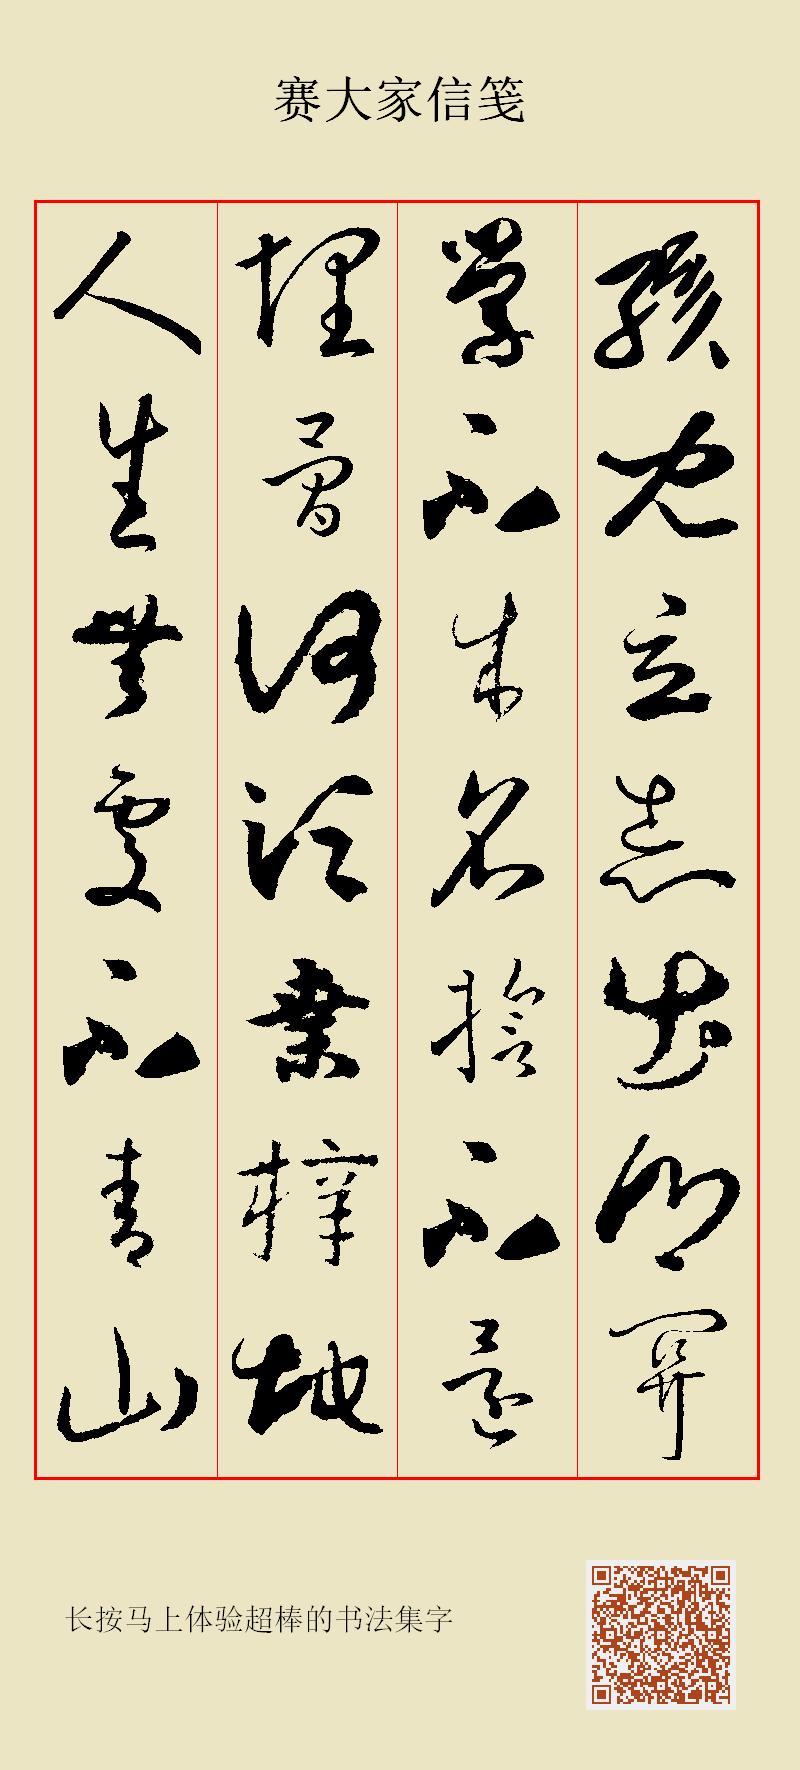 赛大家信笺
孩兒立志出鄉關
學不成名誓不還
埋骨何須桑梓地
人生無處不青山
长按马上体验超棒的书法集字